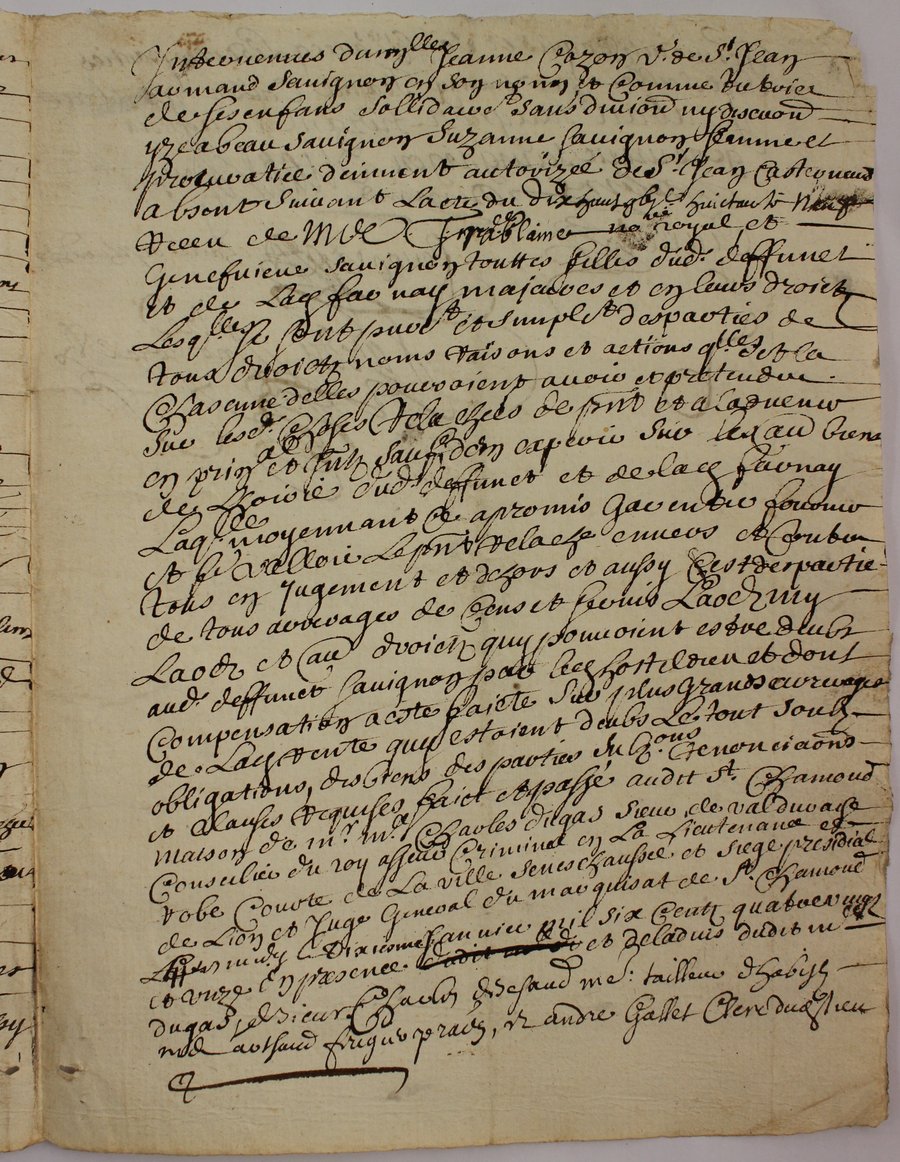 Intervenues damlles Jeanne Cozon v. de Sr Jean
armand Sauignon en son nom et Comme tutrice
de ses enfans sollidaire sans diuiõn ny discuõn
yzeabeau Sauignon Suzanne Sauignon femme et
procuratrice deument autorizéé de Sr Jean Castegnaud
absent Suiuant Lacte du dix huit 9bre huictante Neuf
receu de Me notre royal, et
Geneuieue Sauignon touttes filles dud. deffunct
et de Lad. fauernay majeures et en leurs droicts
Lesqlles se sont puremt et simplemt desparties de
tous droicts noms raisons et actions qlles et la
Chascune delles pouroient auoir et pretendre
Sur lesd. choses relachees de pnt et a laduenir
en prinal et sauf den exercer sur les au biens
de dud. deffunct et de lad. fauernay
Laqlle moyennant ce a promis garentir fournir
et fe valloir Le pnt relache enuers et Contre
tous en Jugement et dehors et aussy Cest despartie
de tous arrerages de Cens et seruis Laods my
Laods et au droicts quy pouuoient estre deubs
aud. deffunct Sauignon par led. hostel dieu et dont
Compensation a esté faicte Sur plus grands arrerages
de Lad. rente quy estoient deubs Le tout soubs
obligations, des biens des parties renonciaõns
et Clauses requises, faict et passé audit St. Chamond
maison de mr. me Charles dugas Sieur de valdurage
Conseiller du roy assesr Criminel en La Lieutenance et
robe Courte de La ville Seneschaussee et siege presidial
de Lion et Juge General du marquisat de St. Chamond
apres midy le dixiesme Januier mil six Cents quatre vings
et unze En presence et de laduis dudit me
dugas, de sieur Charles me. tailleur dhabits
me arthaud et andre Gallet Clerc dud. lieu